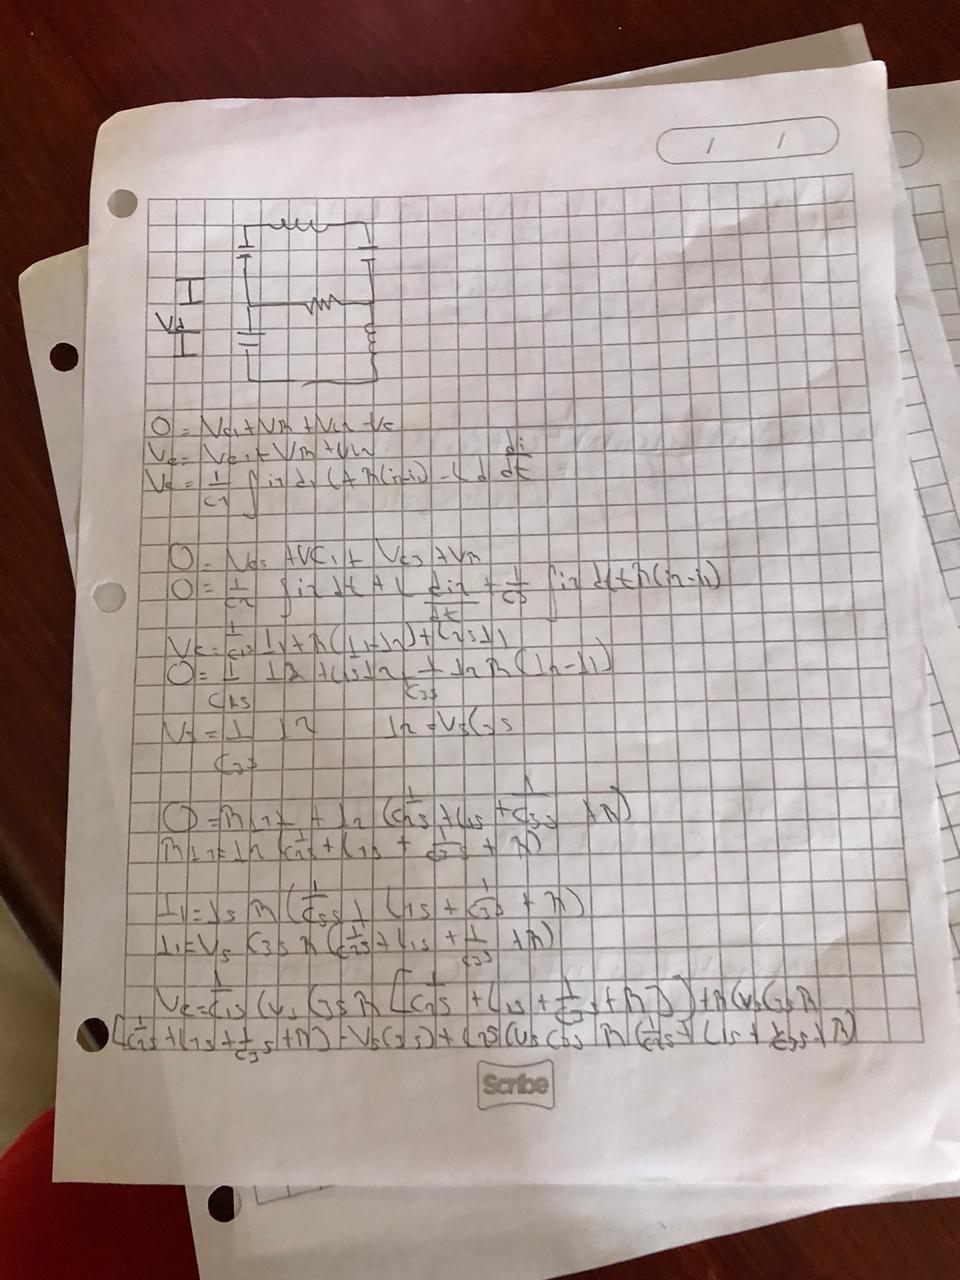 I
Vs
I
0 = Vc1 + VR + VL2 - Ve
Ve = Vc1 + VR + VL2
Ve = 1/C1 ∫ i1 dt + R(i1-i2) - L di/dt
0 = + VC1 + Vc3 + VR
0 = 1/C2 ∫ i2 dt + L di2/dt + 1/C3 ∫ i2 dt + R(i2-i1)
Ve = 1/C1s I1 + R(I1-I2) + L2s I1
0 = 1/C2s I2 + L1s I2 + 1/C3s I2 R(I2-I1)
Vs = 1/C3s I2 I2 = Vs C3s
0 = R I + I2 (1/C2s + L1s + 1/C3s + R)
R I = I2 (1/C2s + L1s + 1/C3s + R)
I1 = Is R (1/C2s + L1s + 1/C3s + R)
I1 = Vs C3s R (1/C2s + L1s + 1/C3s + R)
Ve = 1/C1s (Vs C3s R [1/C2s + L1s + 1/C3s + R]) + R(Vs C3s R
[1/C2s + L1s + 1/C3s + R] - Vs C3s) + L2s (Vs C3s R (1/C2s + L1s + 1/C3s + R)
Scribe